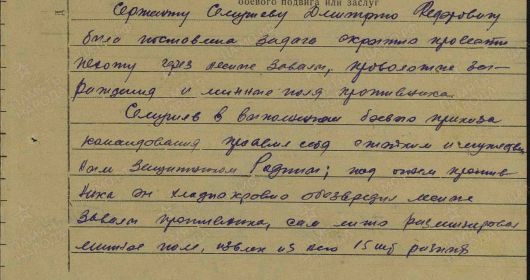 боевого подвига или заслуг
Сержанту Семушеву Дмитрию Федоровичу
была поставлена задача скрытно провести
пехоту через лесные завалы, проволочные заг-
раждения и минные поля противника.
Семушев в выполнении боевого приказа
командования проявил себя стойким и мужествен
ным защитником Родины; под огнем против
ника он хладнокровно обезвредил лесные
завалы противника, сам лично разминировал
минное поле, извлек из него 15 шт разных